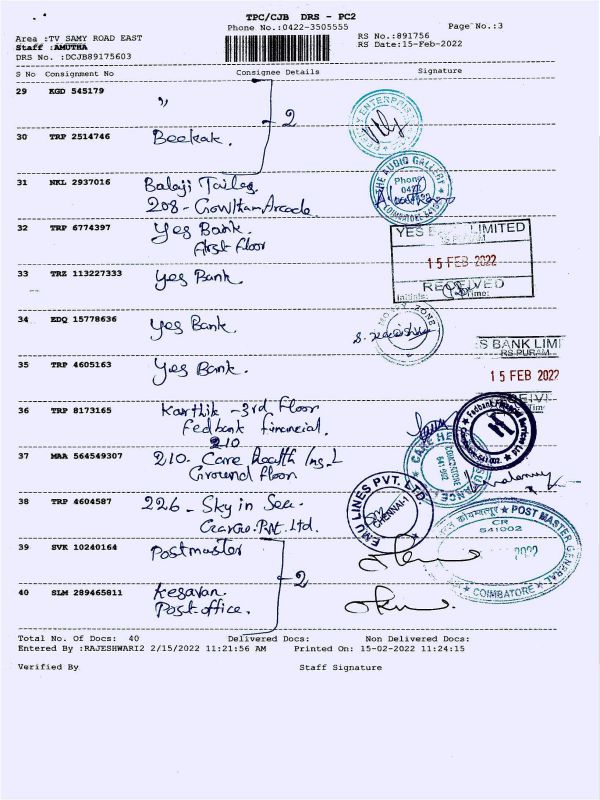 TPC/CJB DRS - PC2
Phone No.:0422-3505555
Page No.:3
Area :TV SAMY ROAD EAST
Staff :AMUTHA
DRS No. :DCJB89175603
RS No.:891756
RS Date:15-Feb-2022
S No Consignment No Consignee Details Signature
29 KGD 545179 〃
2
30 TRP 2514746
31 NKL 2937016 Balaji
THE AUDIO GALLERY
Phone
0422
COIMBATORE
208 - Gowtham Arcade
32 TRP 6774397 Yes Bank.
First Floor
YES BANK LIMITED
RS PURAM
15 FEB 2022
RECEIVED
Initials: Time:
33 TRZ 113227333 Yes Bank.
34 EDQ 15778636 Yes Bank.
MONEY ZONE
S BANK LIMI
RS PURAM
35 TRP 4605163 Yes Bank.
15 FEB 2022
36 TRP 8173165 Karthik - 3rd Floor
Fedbank Financial.
210
Fedbank Financial Services Ltd
37 MAA 564549307 210 - Care Health Ins. L
Ground Floor
COIMBATORE
641 002
38 TRP 4604587 226 - Sky in Sea.
Cargo. Pvt. Ltd.
EMU LINES PVT. LTD.
CHENNAI-1
POST MASTER GENERAL
CR
541002
2022
COIMBATORE
39 SVK 10240164 Postmaster
2
40 SLM 289465811 Kesavan.
Post office.
Total No. Of Docs: 40 Delivered Docs: Non Delivered Docs:
Entered By :RAJESHWARI2 2/15/2022 11:21:56 AM Printed On: 15-02-2022 11:24:15
Verified By Staff Signature